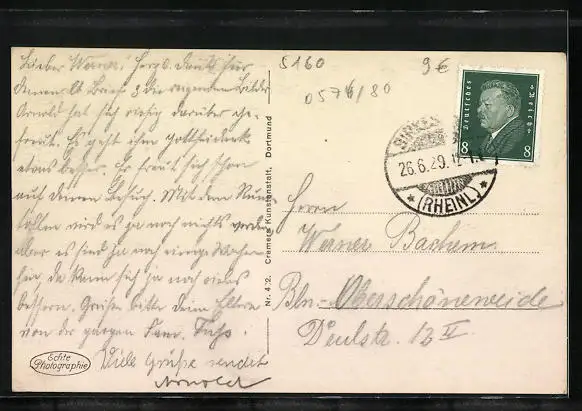 Lieber Werner! Herzl. Dank für
Deinen lb. Brief & die
Arnold hat sich riesig darüber ge-
freut. Es geht ihm Gottseidank
etwas besser. Er freut sich schon
auf Deinen Besuch. Mit dem
wird es ja noch nichts werden
aber es sind ja noch einige Wochen
hin, da kann sich ja noch vieles
bessern. Grüße bitte Deine Eltern
von der ganzen Fam. Fuhs.
Viele Grüße sendet
Arnold
Echte
Photographie
Nr. 42. Cremers Kunstanstalt, Dortmund
5160
0576/80
9€
Deutsches
Reich
8 8
26.6.29.
★ (RHEINL) ★
Herrn
Werner Bachem
Bln-Oberschöneweide
Deulstr. 12 II